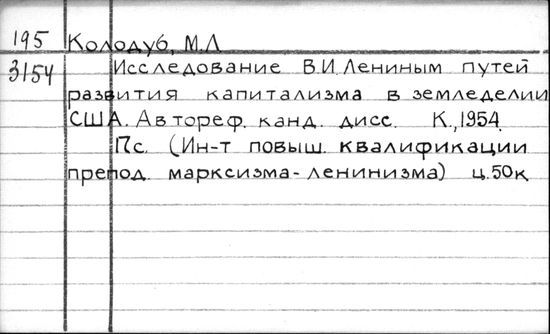 195 Колодуб, М.Л
3154 Исследование В.И. Лениным путей
развития капитализма в земледелии
США. Автореф. канд. дисс. К., 1954.
17с. (Ин-т повыш. квалификации
препод. марксизма-ленинизма) ц. 50к